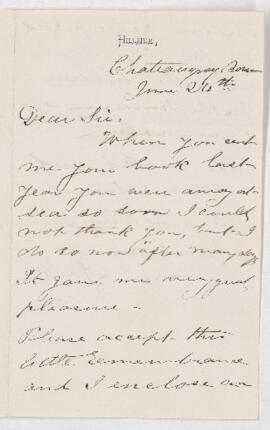 HILLSIDE,
Chateaugay
June 24th
Dear Sir,
When you sent
me your book last
year you were away at
sea so soon I could
not thank you, but I
do so now "after many days"
It gave me very great
pleasure -
Please accept this
little remembrance
and I enclose an